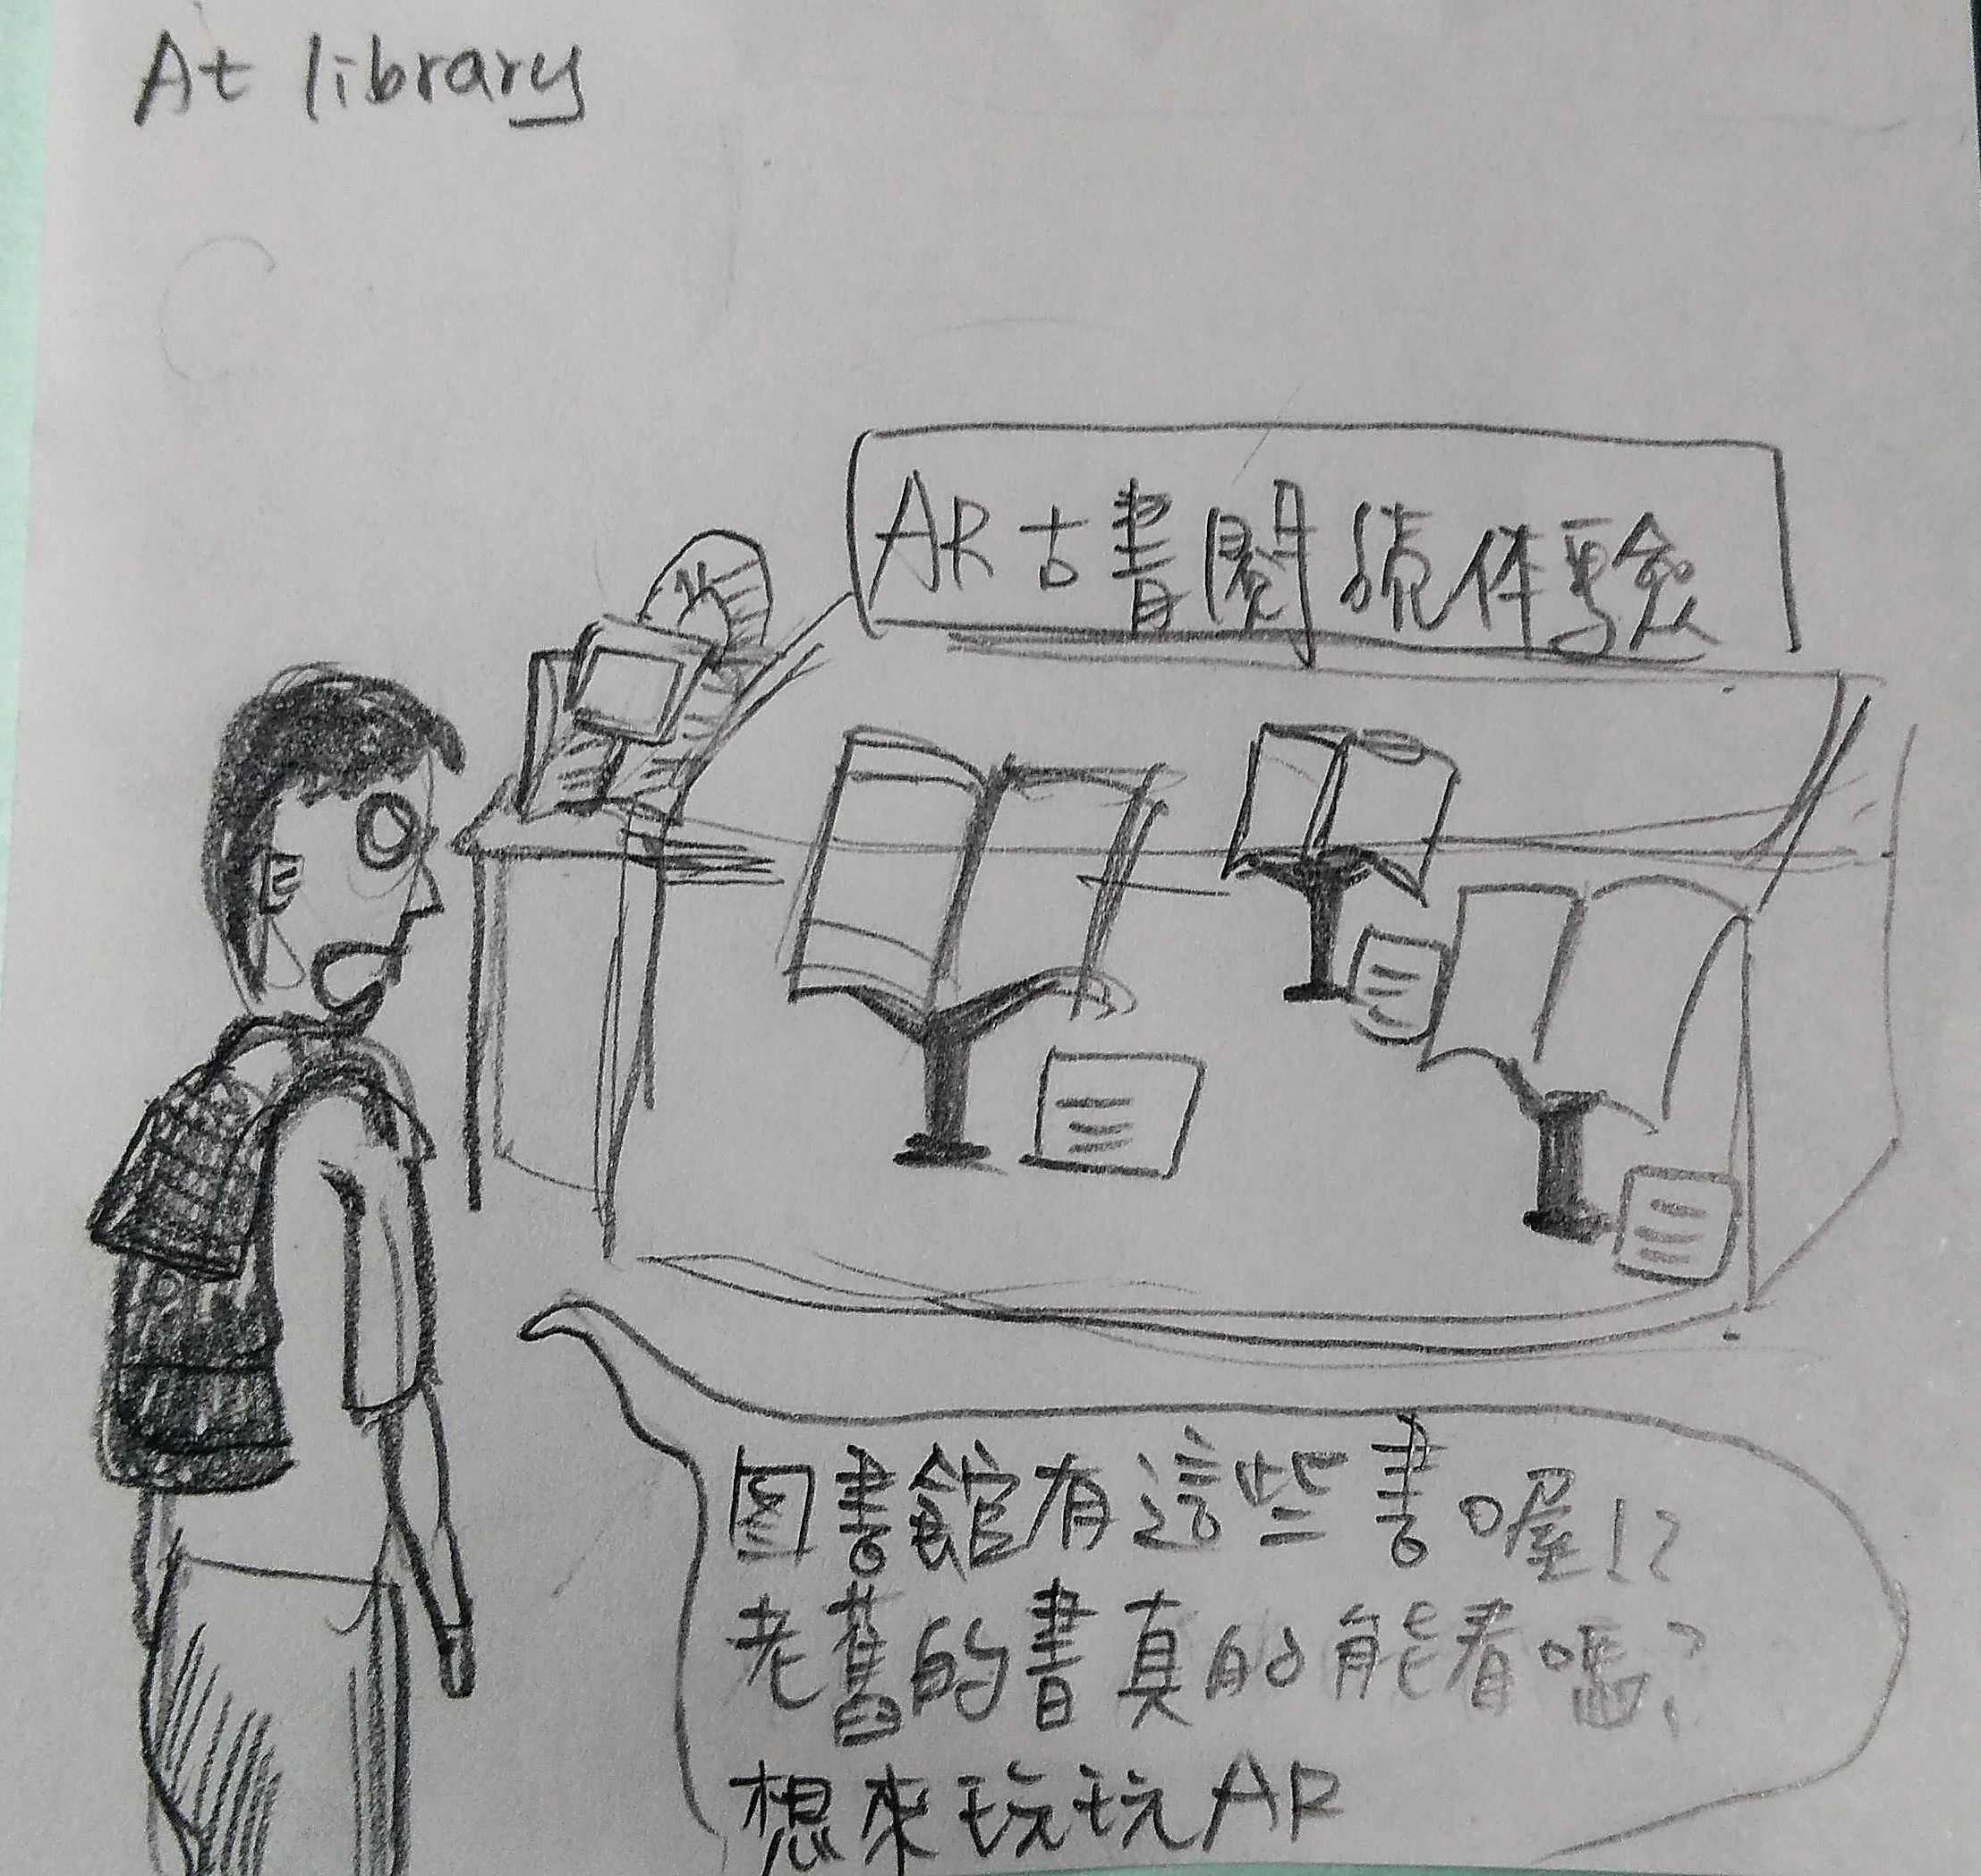 At library
AR古書閱讀体驗
图書館有這些書喔!?
老舊的書真的能看嗎?
想來玩玩AR